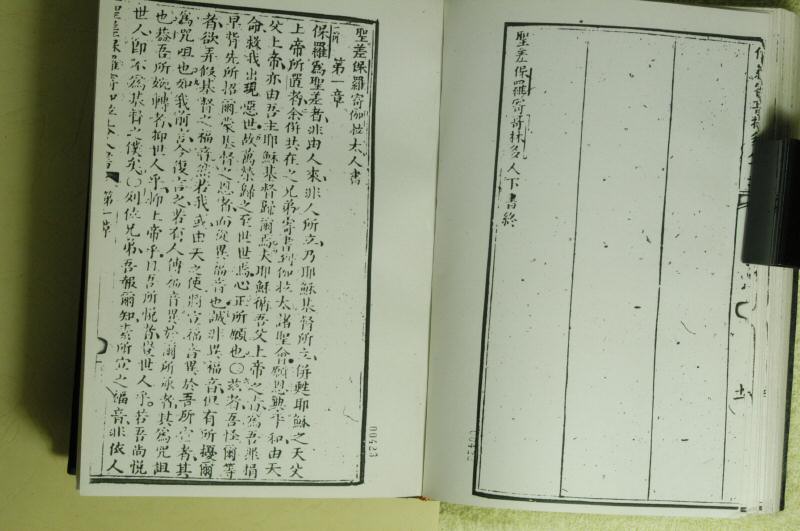 聖差保羅寄哥林多人下書終
聖差保羅寄伽拉太人書
第一章
保羅為聖差者非由人來非人所立乃耶穌基督所立併甦耶穌之天父
上帝所置者余併共在之兄弟寄書到伽拉太諸聖會願恩典平和由天
父上帝亦由吾主耶穌基督歸爾焉夫耶穌循吾父上帝之旨為吾罪捐
命救我出現惡世故萬榮歸之至世世焉心正所願也〇茲者吾怪爾等
早背先所招爾蒙基督之恩者而從異福音也誠非異福音但有所擾爾
者欲弄假基督之福音然若我或由天之使將宣福音異於吾所宣者其
為咒咀也如我前言今復言之若有人傳福音異於爾所承者其為咒詛
也蓋吾所婉轉者抑世人乎抑上帝乎且吾所悅者豈世人乎若吾尚悅
世人即不為基督之僕矣〇列位兄弟吾報爾知素所宣之福音非依人
第一章
00423